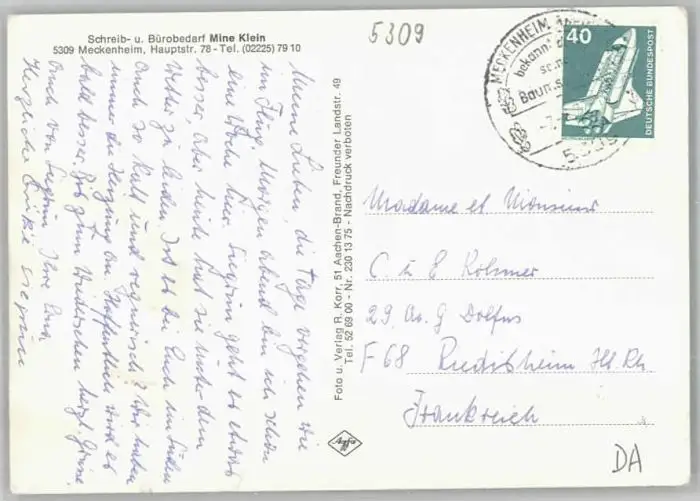 Schreib- u. Bürobedarf Mine Klein
5309 Meckenheim, Hauptstr. 78 - Tel. (02225) 79 10
5309
MECKENHEIM
bekannt
Baum
5309
40
DEUTSCHE BUNDESPOST
Meine Lieben, die Tage vergehen wie
im Flug. Morgen abend bin ich schon
eine Woche hier. Siegrun geht es etwas
besser, aber heute hat sie unter dem
Wetter zu leiden. Ist es bei Euch im Süden
auch so kalt und regnerisch? Wir haben
immer die Heizung an. Hoffentlich wird es
bald besser. Bis zum Wiedersehen herzl. Grüsse
auch von Siegrun Ihre Eure
Herzliche Grüße Siegrun
Foto u. Verlag R. Korr, 51 Aachen-Brand, Freunder Landstr. 49
Tel. 52 69 00 - Nr. 230 13 75 - Nachdruck verboten
Agfa
Madame et Monsieur
C u E Kohmer
29 Av. G Dolfus
F 68 Riedisheim Ht. Rh.
Frankreich
DA